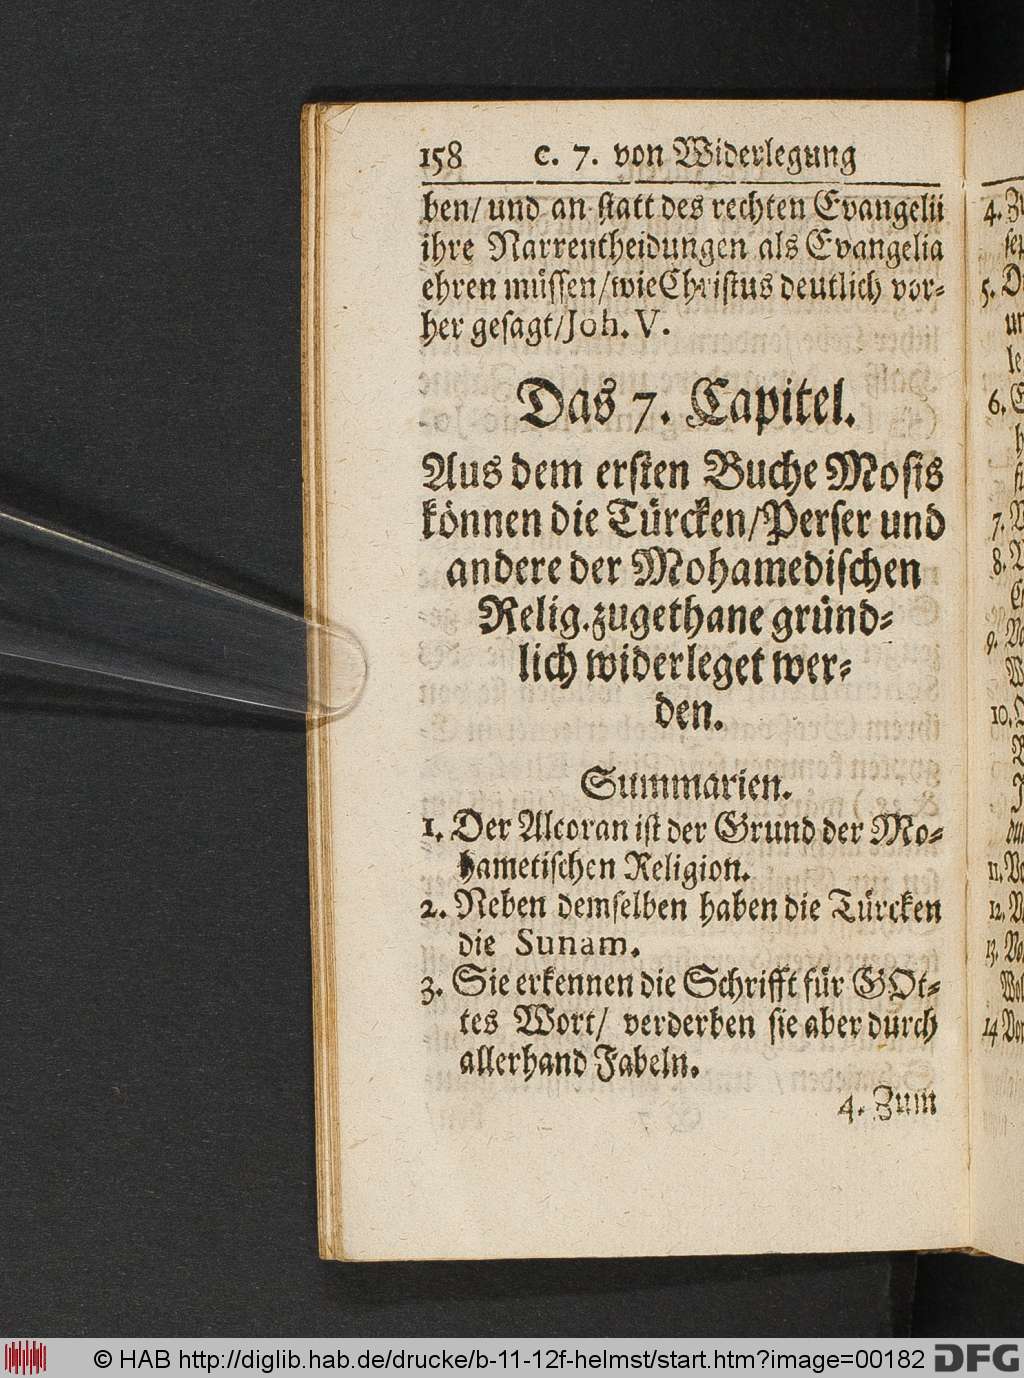 158 c. 7. von Widerlegung
ben/ und an statt des rechten Evangelii
ihre Narrentheidungen als Evangelia
ehren müssen/wieChristus deutlich vor-
her gesagt/Joh. V.
Das 7. Capitel.
Aus dem ersten Buche Mosis
können die Türcken/Perser und
andere der Mohamedischen
Relig.zugethane gründ-
lich widerleget wer-
den.
Summarien.
1. Der Alcoran ist der Grund der Mo-
hametischen Religion.
2. Neben demselben haben die Türcken
die Sunam.
3. Sie erkennen die Schrifft für GOt-
tes Wort/ verderben sie aber durch
allerhand Fabeln.
4. Zum
4.
5.
6.
7.
8.
9.
10.
11.
12.
13.
14
© HAB http://diglib.hab.de/drucke/b-11-12f-helmst/start.htm?image=00182 DFG